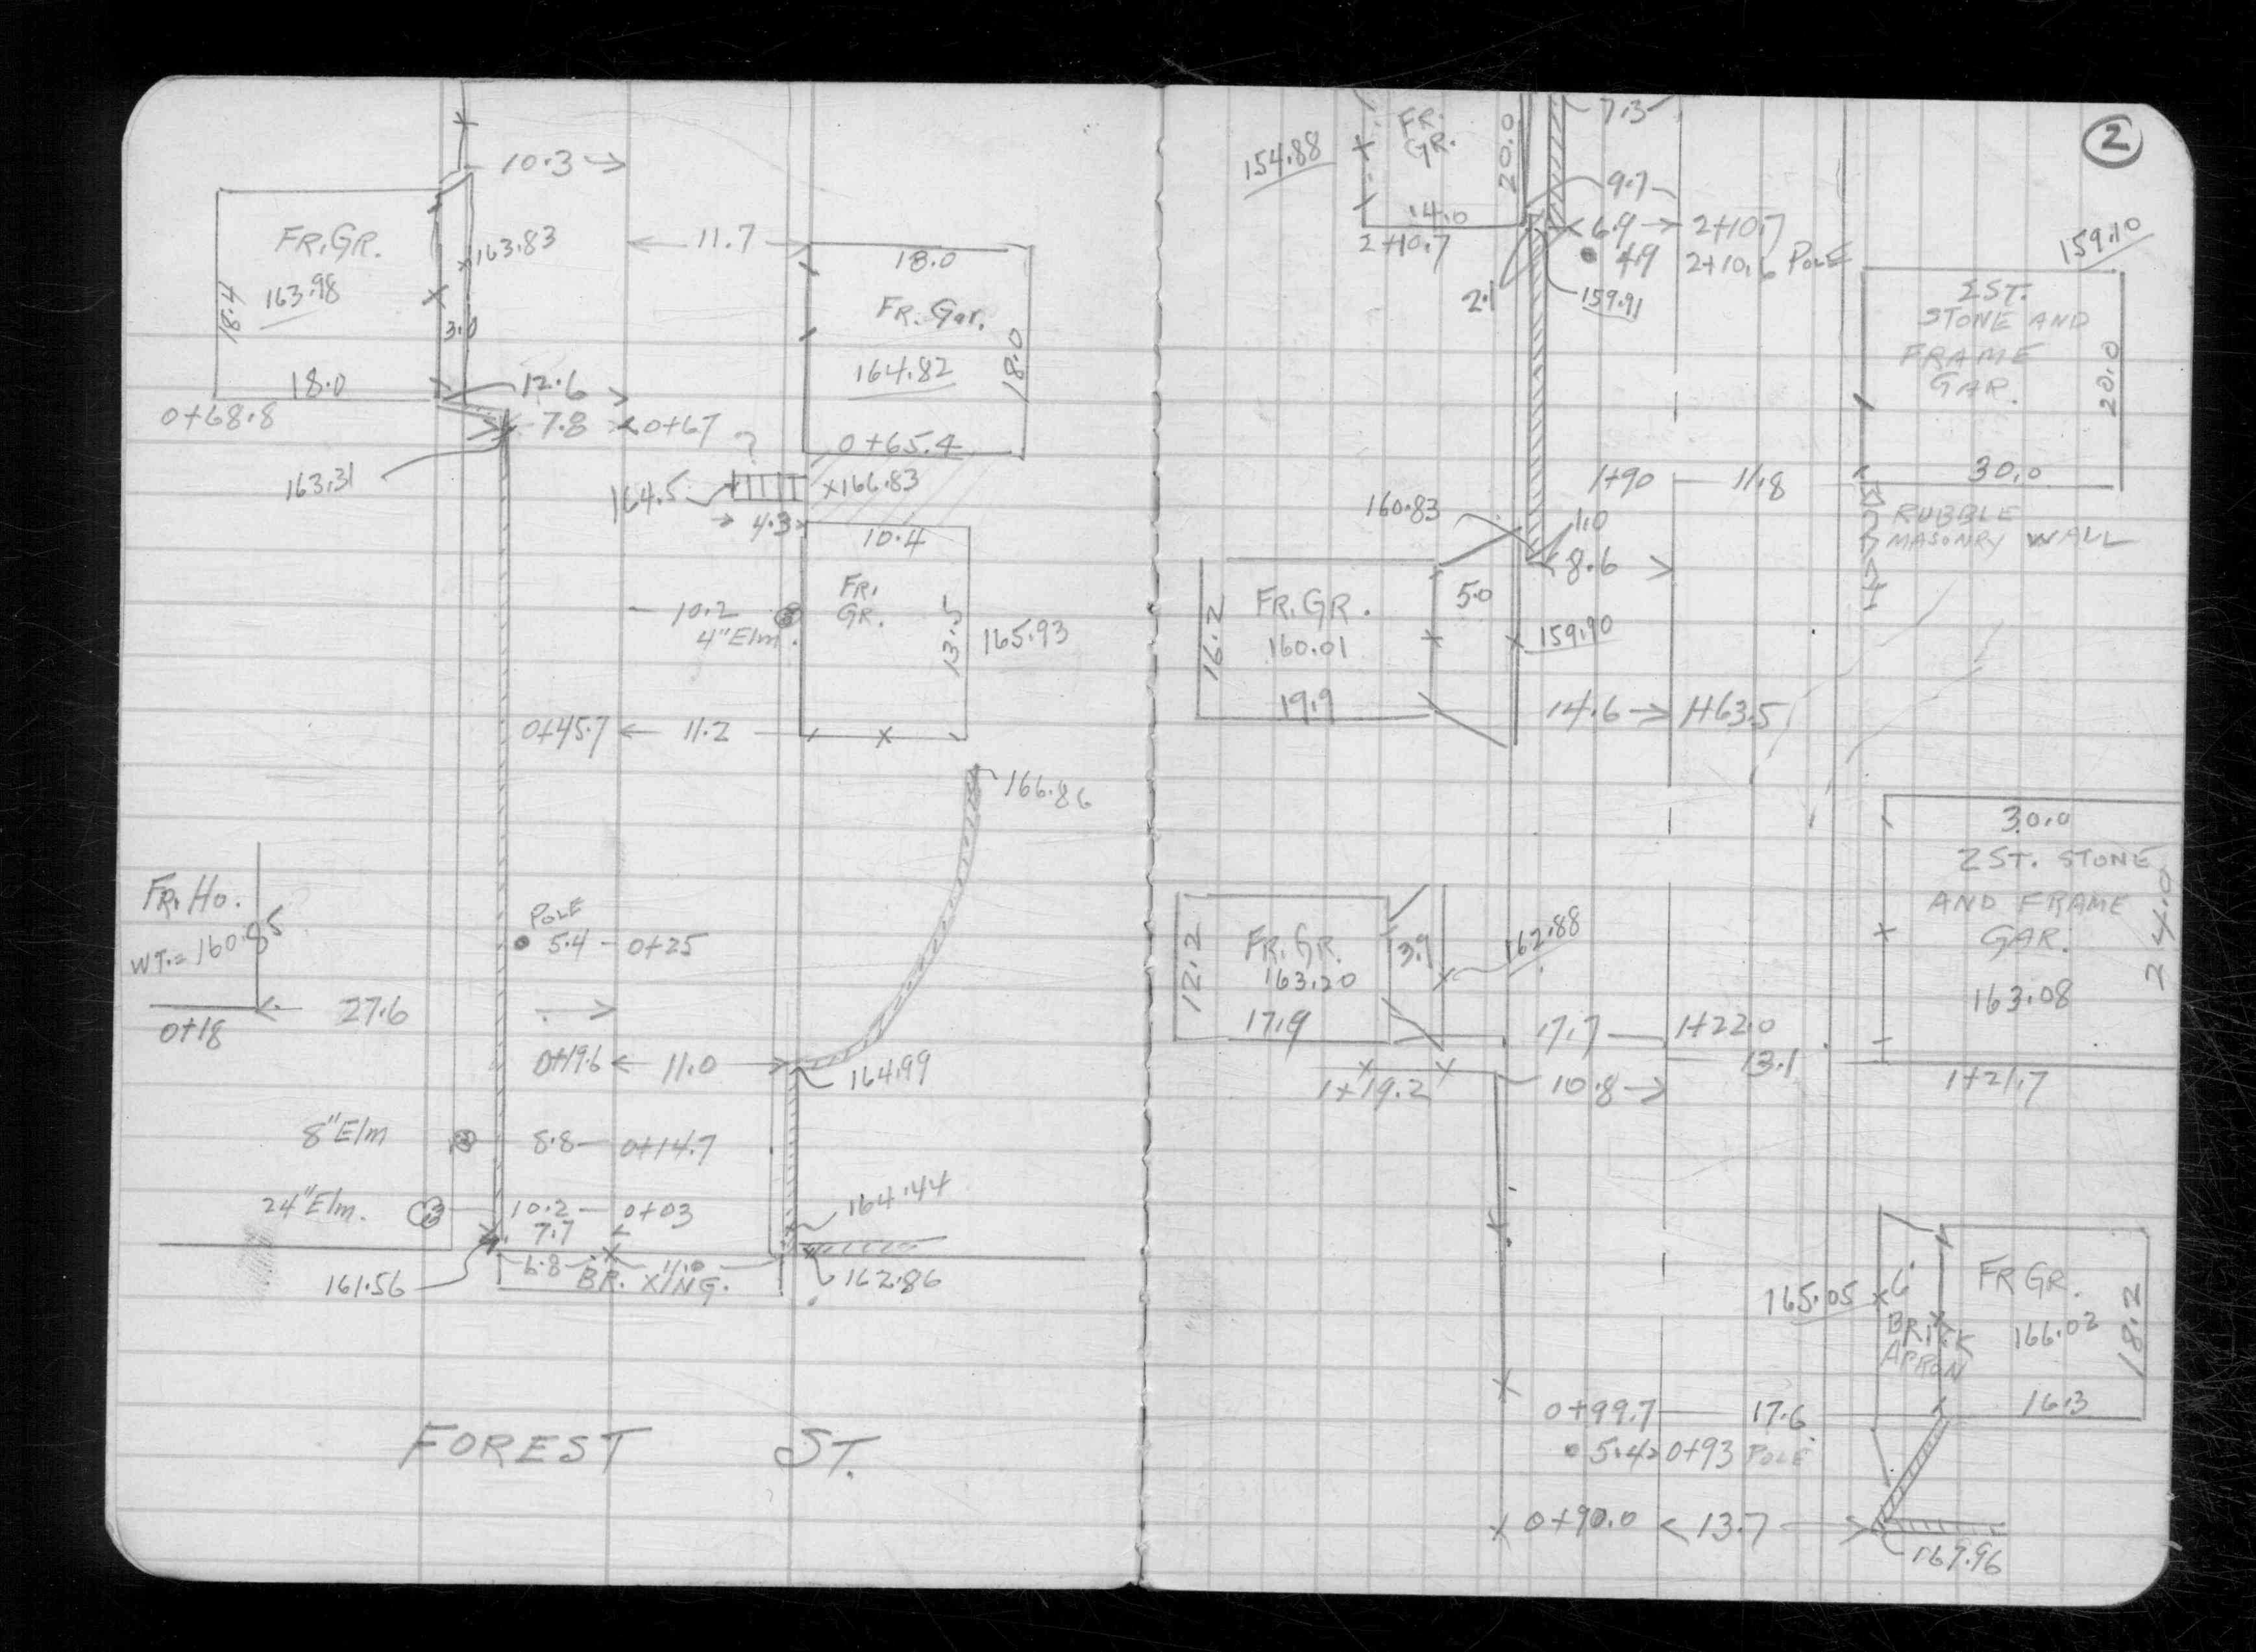 10.3
FR. GR.
163.98
18.4
18.0
0+68.8
163.83
3.0
11.7
18.0
FR. Gar.
164.82
18.0
0+65.4
12.6
7.8
0+67
?
163.31
164.5
4.3
x166.83
10.4
FR.
GR.
13.5
165.93
10.2
4" Elm.
0+45.7
11.2
166.86
FR. Ho.
WT.= 160.85
?
27.6
0+18
POLE
5.4 - 0+25
0+19.6
11.0
164.99
8" Elm
8.8 - 0+14.7
24" Elm.
10.2 - 0+03
7.7
164.44
6.8
BR. XING.
161.56
162.86
FOREST ST.
2
7.3
154.88
FR.
GR.
20.0
14.0
2+10.7
9.7
6.9 → 2+10.7
4.9 2+10.6 POLE
2.1
159.91
159.10
2ST.
STONE AND
FRAME
GAR.
20.0
30.0
1+90
11.8
RUBBLE
MASONRY WALL
160.83
1.0
8.6
16.2
FR. GR.
160.01
19.9
5.0
159.90
14.6 → 1+63.5
30.0
2 ST. STONE
AND FRAME
GAR.
163.08
24.0
12.2
FR. GR.
163.20
17.9
3.9
162.88
17.7
1+22.0
13.1
1+21.7
1+19.2
10.8
165.05
6'
BRICK
APRON
FR GR.
166.02
18.2
16.3
0+99.7
17.6
5.4 0+93 POLE
0+90.0
13.7
167.96